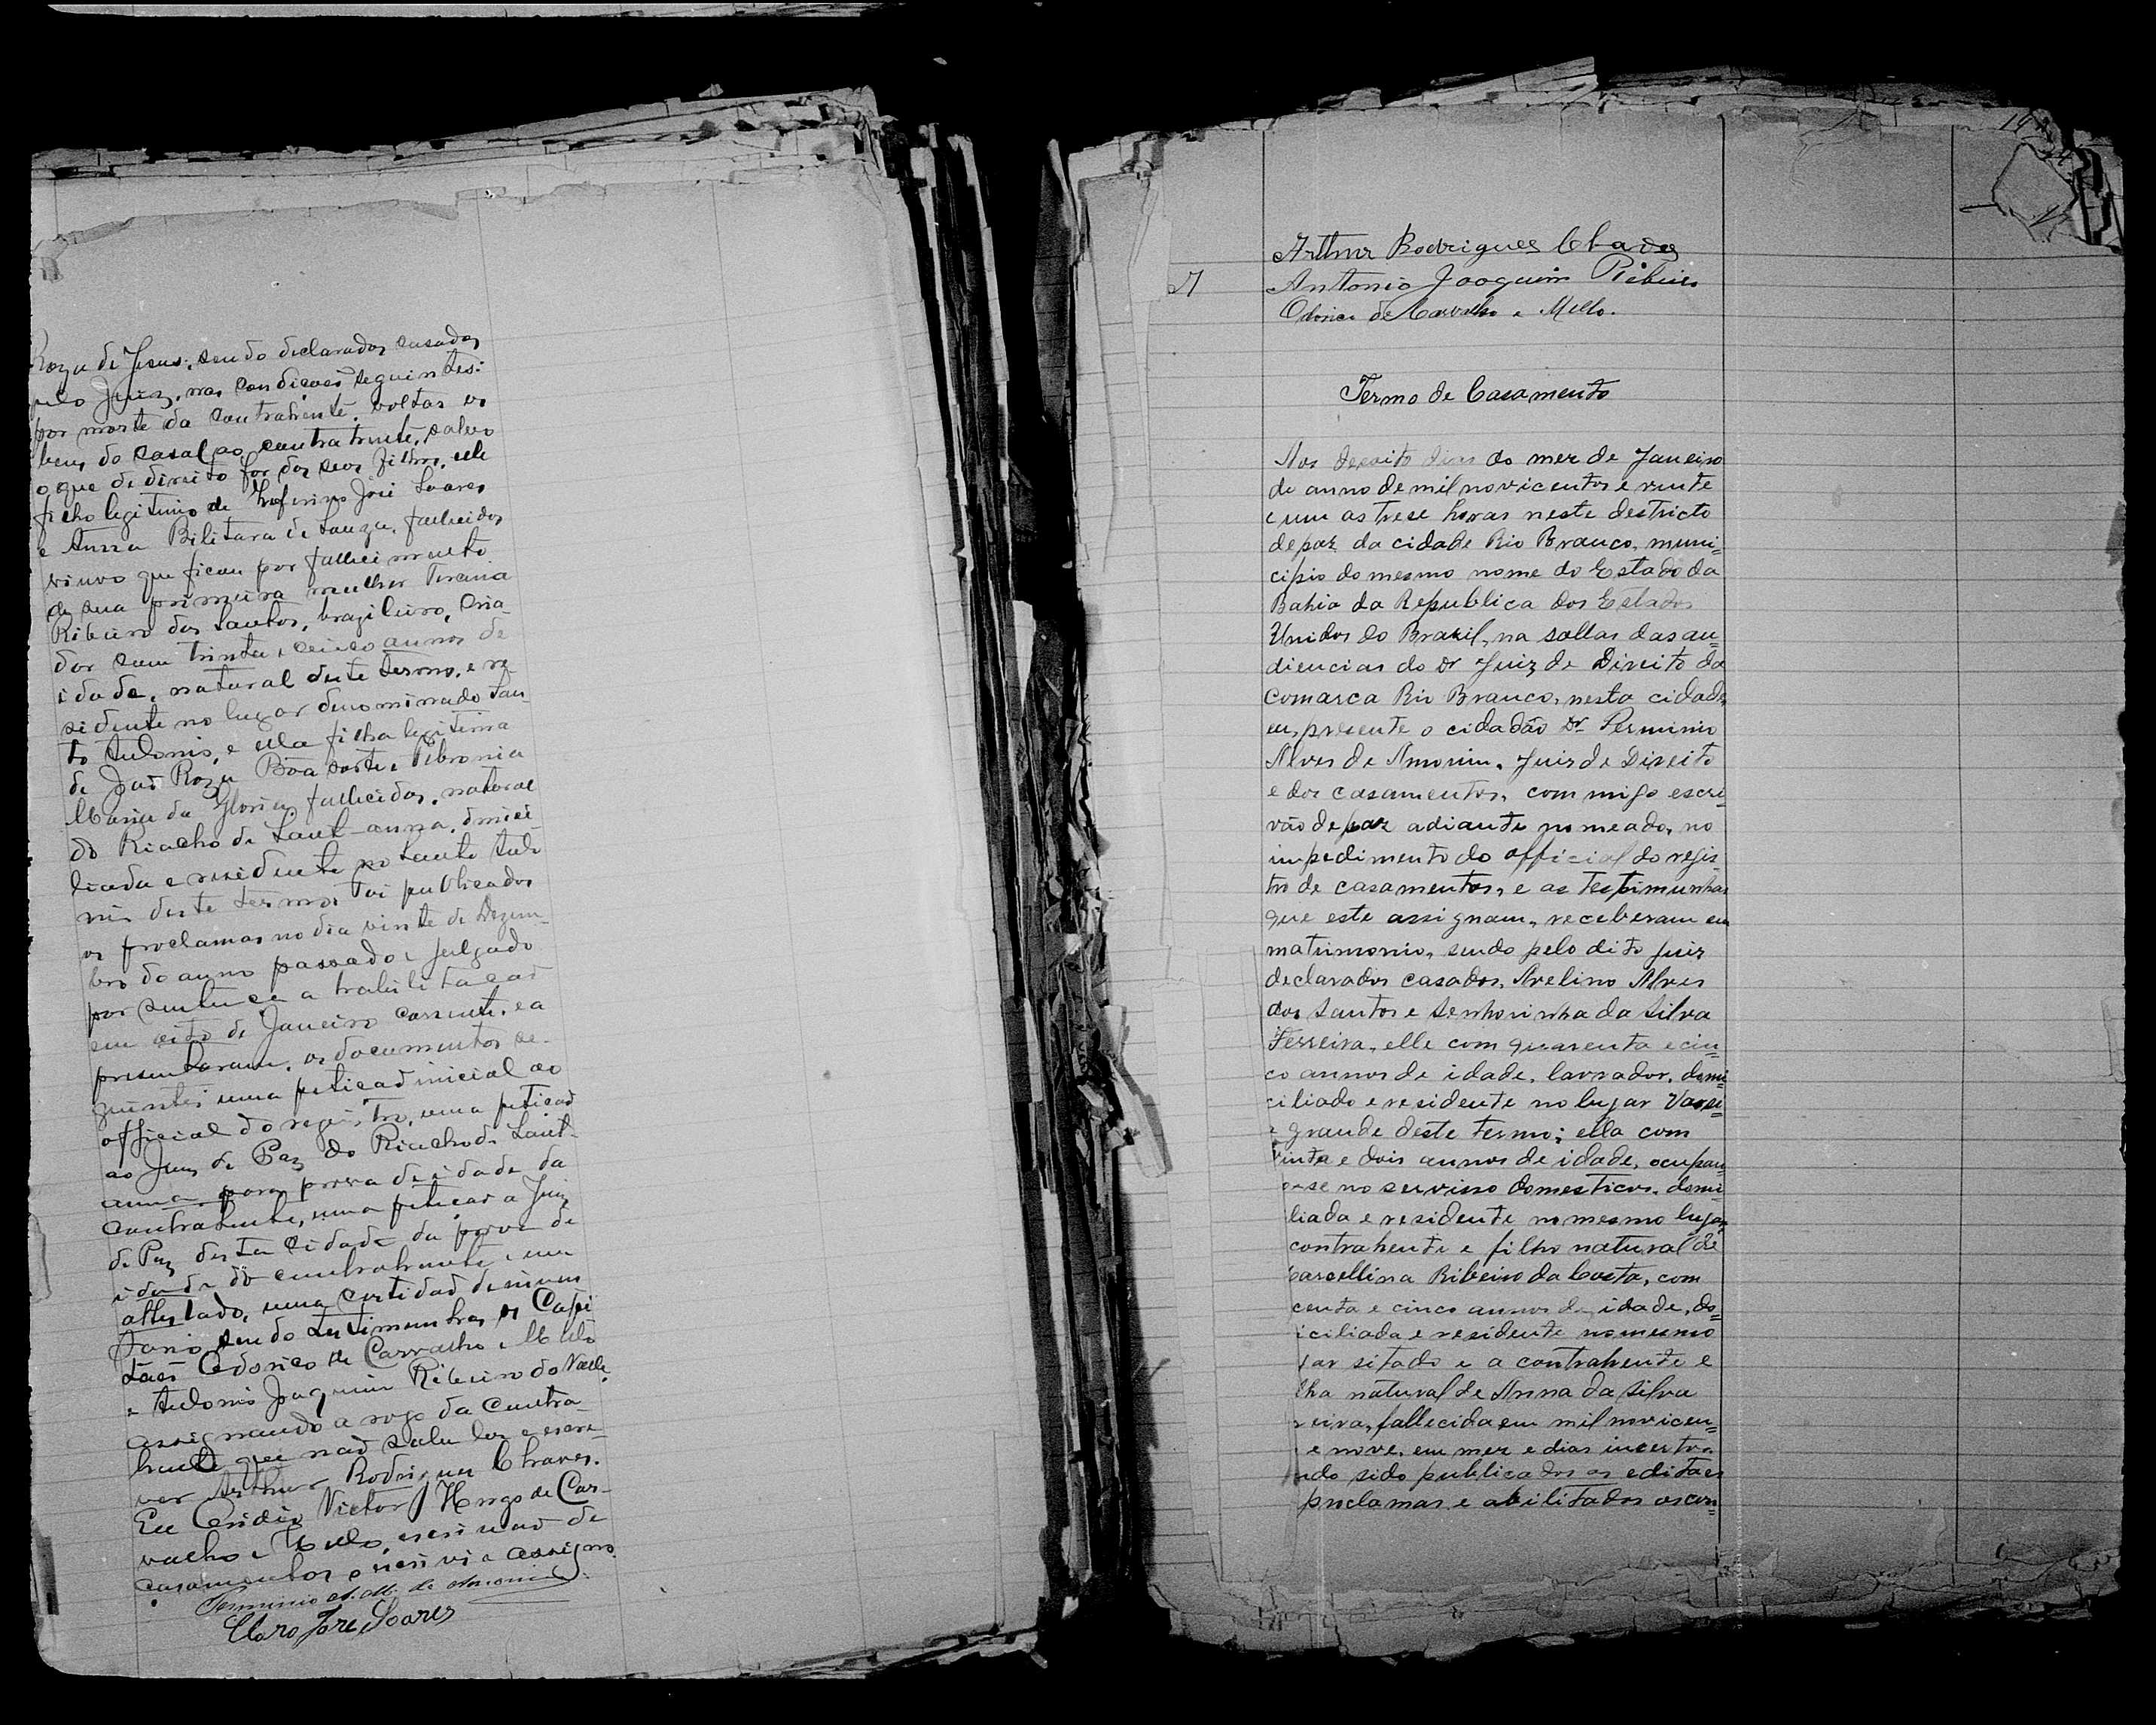 Roza de Jesus, sendo declarados casados
pelo Juiz, nas condicoes seguintes:
por morte da contrahente, voltar os
bens do casal ao contrahente, salvo
o que de direito for dos seos filhos, elle
filho legitimo de Zeferino José Soares
e Anna de Souza, fallecidos
viuvo que ficou por fallecimento
de sua primeira mulher
Ribeiro dos Santos, brazileiro, cria-
dor com trinta e cinco annos de
idade, natural deste termo, e re
sidente no lugar denominado San
to Antonio, e ella filha legitima
de Joaõ Roza Bôa Sorte e Pibronia
Maria da Gloria, fallecidos, natural
do Riacho de Sant-anna, domici
liada e residente no Santo Anto
nio deste termo, Foi publicados
os proclamas no dia vinte de Dezem-
bro do anno passado e julgado
por sentença a habilitacaõ
em oito de Janeiro corrente, e a
presentaram os documentos se-
guintes uma peticaõ inicial ao
official do registro, uma peticaõ
ao Juiz de Paz do Riacho de Sant-
anna para prova de idade da
contrahente, uma peticaõ a Juiz
de Paz desta cidade da prova de
idade do contrahente, um
attestado, uma certidaõ de
sendo testimunhas os Capi
taẽs Odorico de Carvalho e Mello
e Antonio Joaquim Ribeiro do Valle,
assignando a rogo da Contra-
hente que naõ sabe ler e escre-
ver Arthur Rodrigues Chaves.
Eu Victor Hugo de Car-
valho e Mello, escrivaõ de
casamentos o escrivi e assigno.
Perminio A. de Amorim
Claro Jore Soares
Arthur Rodrigues Chaves
21 Antonio Joaquim Ribeiro
Odorico de Carvalho e Mello.
Termo de Casamento
Aos desoito dias do mez de Janeiro
do anno de mil novicentos e vinte
e um as trese horas neste destricto
de paz da cidade Rio Branco, muni=
cipio do mesmo nome do Estado da
Bahia da Republica dos Estados
Unidos do Brazil, na sallas das au
diencias do Dr Juiz de Direito da
Comarca Rio Branco, nesta cidade,
em presente o cidadão Dr Perminio
Alves de Amorim, Juiz de Direito
e dos casamentos, com migo escri=
vão de paz adiante nomeado, no
impedimento do official do regis
tro de casamentos, e as testimunhas
que este assignam, receberam em
matrimonio, sendo pelo dito juiz
declarados casados, Avelino Alves
dos Santos e Senhorinha da Silva
Ferreira, elle com quarenta e cin=
co annos de idade, lavrador, domi
ciliado e residente no lugar Varse=
grande deste termo; ella com
vinta e dois annos de idade, ocupan
o-se no servisso domesticos, domi
liada e residente no mesmo lugar,
contrahente e filho natural de
Marcellina Ribeiro da Costa, com
centa e cinco annos de idade, do=
iciliada e residente no mesmo
gar sitado e a contrahente e
lha natural de Anna da Silva
reira, fallecida em mil novicen=
e nove, em mez e dias incertos
ndo sido publicados os editaes
proclamas e abilitados os con=